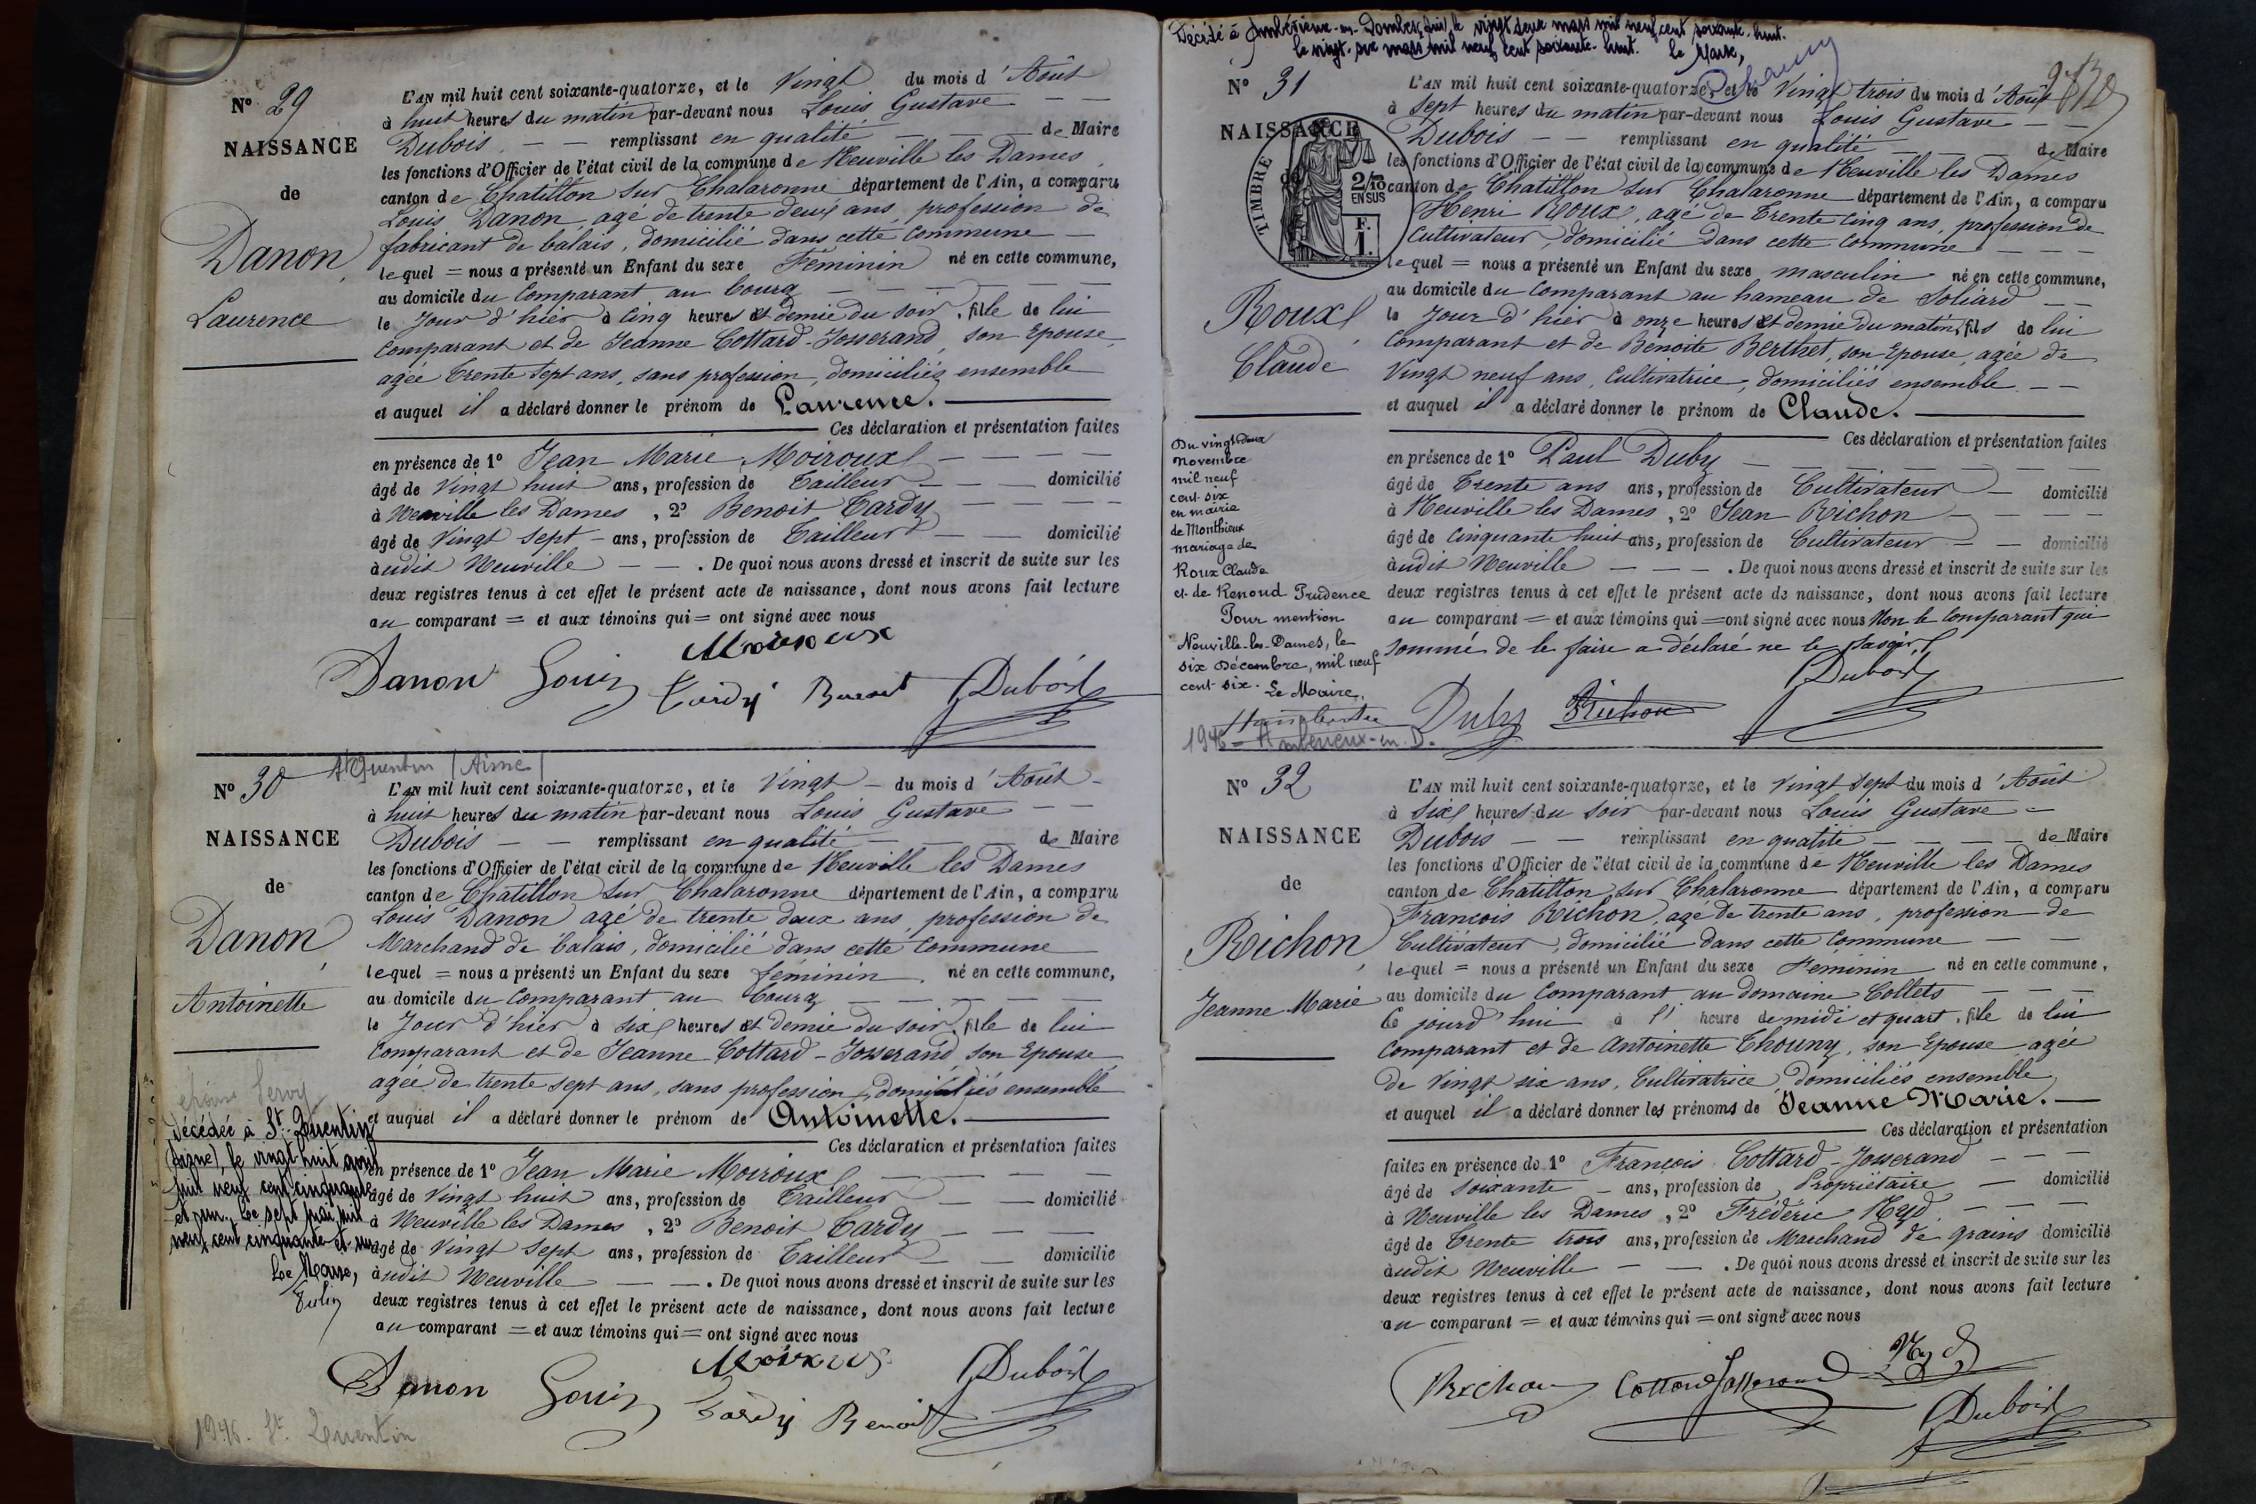 N° 29
NAISSANCE
de
Danon
Laurence
L'AN mil huit cent soixante-quatorze, et le Vingt du mois d'Août
à huit heures du matin par-devant nous Louis Gustave
Dubois remplissant en qualité de Maire
les fonctions d'Officier de l'état civil de la commune de Neuville les Dames
canton de Chatillon sur Chalaronne département de l'Ain, a comparu
Louis Danon, agé de trente deux ans, profession de
fabricant de balais, domicilié dans cette commune
lequel = nous a présenté un Enfant du sexe Féminin né en cette commune,
au domicile du Comparant au bourg
le Jour d'hier à Cinq heures et demie du soir, fille de lui
Comparant et de Jeanne Cottard-Josserand, son Epouse,
agée trente sept ans, sans profession, domiciliés ensemble
et auquel il a déclaré donner le prénom de Laurence.
Ces déclaration et présentation faites
en présence de 1° Jean Marie Moiroux
âgé de Vingt huit ans, profession de Tailleur domicilié
à Neuville les Dames, 2° Benoit Tardy
âgé de Vingt Sept ans, profession de Tailleur domicilié
àudit Neuville. De quoi nous avons dressé et inscrit de suite sur les
deux registres tenus à cet effet le présent acte de naissance, dont nous avons fait lecture
au comparant = et aux témoins qui = ont signé avec nous
Moiroux
Danon Louis Tardy Benoit Dubois
St Quentin (Aisne)
N° 30
NAISSANCE
de
Danon
Antoinette
L'AN mil huit cent soixante-quatorze, et le Vingt du mois d'Août
à huit heures du matin par-devant nous Louis Gustave
Dubois remplissant en qualité de Maire
les fonctions d'Officier de l'état civil de la commune de Neuville les Dames
canton de Chatillon sur Chalaronne département de l'Ain, a comparu
Louis Danon, agé de trente deux ans, profession de
Marchand de balais, domicilié dans cette Commune
lequel = nous a présenté un Enfant du sexe feminin né en cette commune,
au domicile du Comparant au bourg
le Jour d'hier à six heures et demie du soir, fille de lui
Comparant et de Jeanne Cottard-Josserand, son Epouse
agée de trente sept ans, sans profession, domiciliés ensemble
et auquel il a déclaré donner le prénom de Antoinette.
Ces déclaration et présentation faites
en présence de 1° Jean Marie Moiroux
âgé de Vingt huit ans, profession de Tailleur domicilié
à Neuville les Dames, 2° Benoit Tardy
âgé de Vingt Sept ans, profession de Tailleur domicilié
àudit Neuville. De quoi nous avons dressé et inscrit de suite sur les
deux registres tenus à cet effet le présent acte de naissance, dont nous avons fait lecture
au comparant = et aux témoins qui = ont signé avec nous
Moiroux
Danon Louis Tardy Benoit Dubois
Décédée à St-Quentin
(Aisne), le vingt-huit avril
mil neuf cent cinquante
et un. Le sept mai mil
neuf cent cinquante et un
Le Maire,
1946. St Quentin
Décédé à Ambérieux-en-Dombes (Ain) le vingt deux mars mil neuf cent soixante-huit.
le vingt-six mars mil neuf cent soixante-huit. Le Maire,
N° 31
NAISSANCE
de
TIMBRE
2/10
EN SUS
F.
1.
Roux
Claude
L'AN mil huit cent soixante-quatorze, et le Vingt trois du mois d'Août
à Sept heures du matin par-devant nous Louis Gustave
Dubois remplissant en qualité de Maire
les fonctions d'Officier de l'état civil de la commune de Neuville les Dames
canton de Chatillon sur Chalaronne département de l'Ain, a comparu
Henri Roux, agé de trente cinq ans, profession de
Cultivateur, domicilié dans cette commune
lequel = nous a présenté un Enfant du sexe masculin né en cette commune,
au domicile du Comparant au hameau de Soliard
le Jour d'hier à onze heures et demie du matin, fils de lui
Comparant et de Benoite Berthet, son Epouse, agée de
Vingt neuf ans, Cultivatrice, domiciliés ensemble
et auquel il a déclaré donner le prénom de Claude.
Ces déclaration et présentation faites
en présence de 1° Paul Duby
âgé de Trente ans ans, profession de Cultivateur domicilié
à Neuville les Dames, 2° Jean Richon
âgé de Cinquante huit ans, profession de Cultivateur domicilié
àudit Neuville. De quoi nous avons dressé et inscrit de suite sur les
deux registres tenus à cet effet le présent acte de naissance, dont nous avons fait lecture
au comparant = et aux témoins qui = ont signé avec nous Non le Comparant qui
sommé de le faire a déclaré ne le savoir.
Duby Richon Dubois
Du vingt deux
Novembre
mil neuf
cent-six
en mairie
de Monthieux
mariage de
Roux Claude
et de Renoud Prudence
Pour mention
Neuville-les-Dames, le
six Décembre, mil neuf
cent-six. Le Maire,
1946 - Ambérieux-en-D.
N° 32
NAISSANCE
de
Richon
Jeanne Marie
L'AN mil huit cent soixante-quatorze, et le Vingt Sept du mois d'Août
à Six heures du soir par-devant nous Louis Gustave
Dubois remplissant en qualité de Maire
les fonctions d'Officier de l'état civil de la commune de Neuville les Dames
canton de Chatillon sur Chalaronne département de l'Ain, a comparu
François Richon, agé de trente ans, profession de
Cultivateur, domicilié dans cette Commune
lequel = nous a présenté un Enfant du sexe Féminin né en cette commune,
au domicile du Comparant au domaine Collets
Ce jourd'hui à l' heure de midi et quart, fille de lui
Comparant et de Antoinette Thouny, son Epouse agée
de Vingt six ans, Cultivatrice, domiciliés ensemble
et auquel il a déclaré donner les prénoms de Jeanne Marie.
Ces déclaration et présentation
faites en présence de 1° François Cottard-Josserand
âgé de soixante ans, profession de Propriétaire domicilié
à Neuville les Dames, 2° Fréderic Nyd
âgé de Trente trois ans, profession de Marchand de grains domicilié
àudit Neuville. De quoi nous avons dressé et inscrit de suite sur les
deux registres tenus à cet effet le présent acte de naissance, dont nous avons fait lecture
au comparant = et aux témoins qui = ont signé avec nous
Richon Cottard Josserand Nyd
Dubois